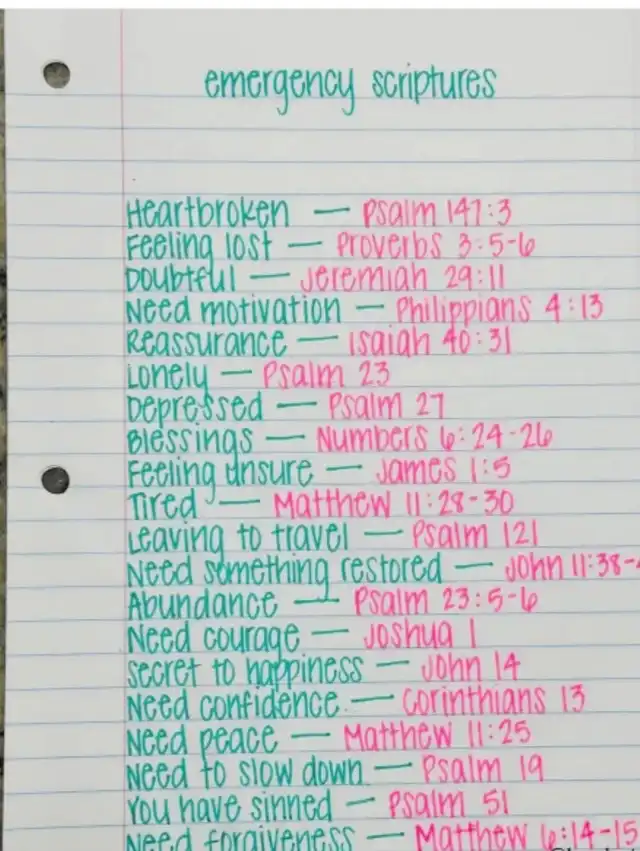 emergency scriptures
Heartbroken — Psalm 147:3
Feeling lost — Proverbs 3:5-6
Doubtful — Jeremiah 29:11
Need motivation — Philippians 4:13
Reassurance — Isaiah 40:31
Lonely — Psalm 23
Depressed — Psalm 27
Blessings — Numbers 6:24-26
Feeling unsure — James 1:5
Tired — Matthew 11:28-30
Leaving to travel — Psalm 121
Need something restored — John 11:38-
Abundance — Psalm 23:5-6
Need courage — Joshua 1
Secret to happiness — John 14
Need confidence — Corinthians 13
Need peace — Matthew 11:25
Need to slow down — Psalm 19
You have sinned — Psalm 51
Need forgiveness — Matthew 6:14-15